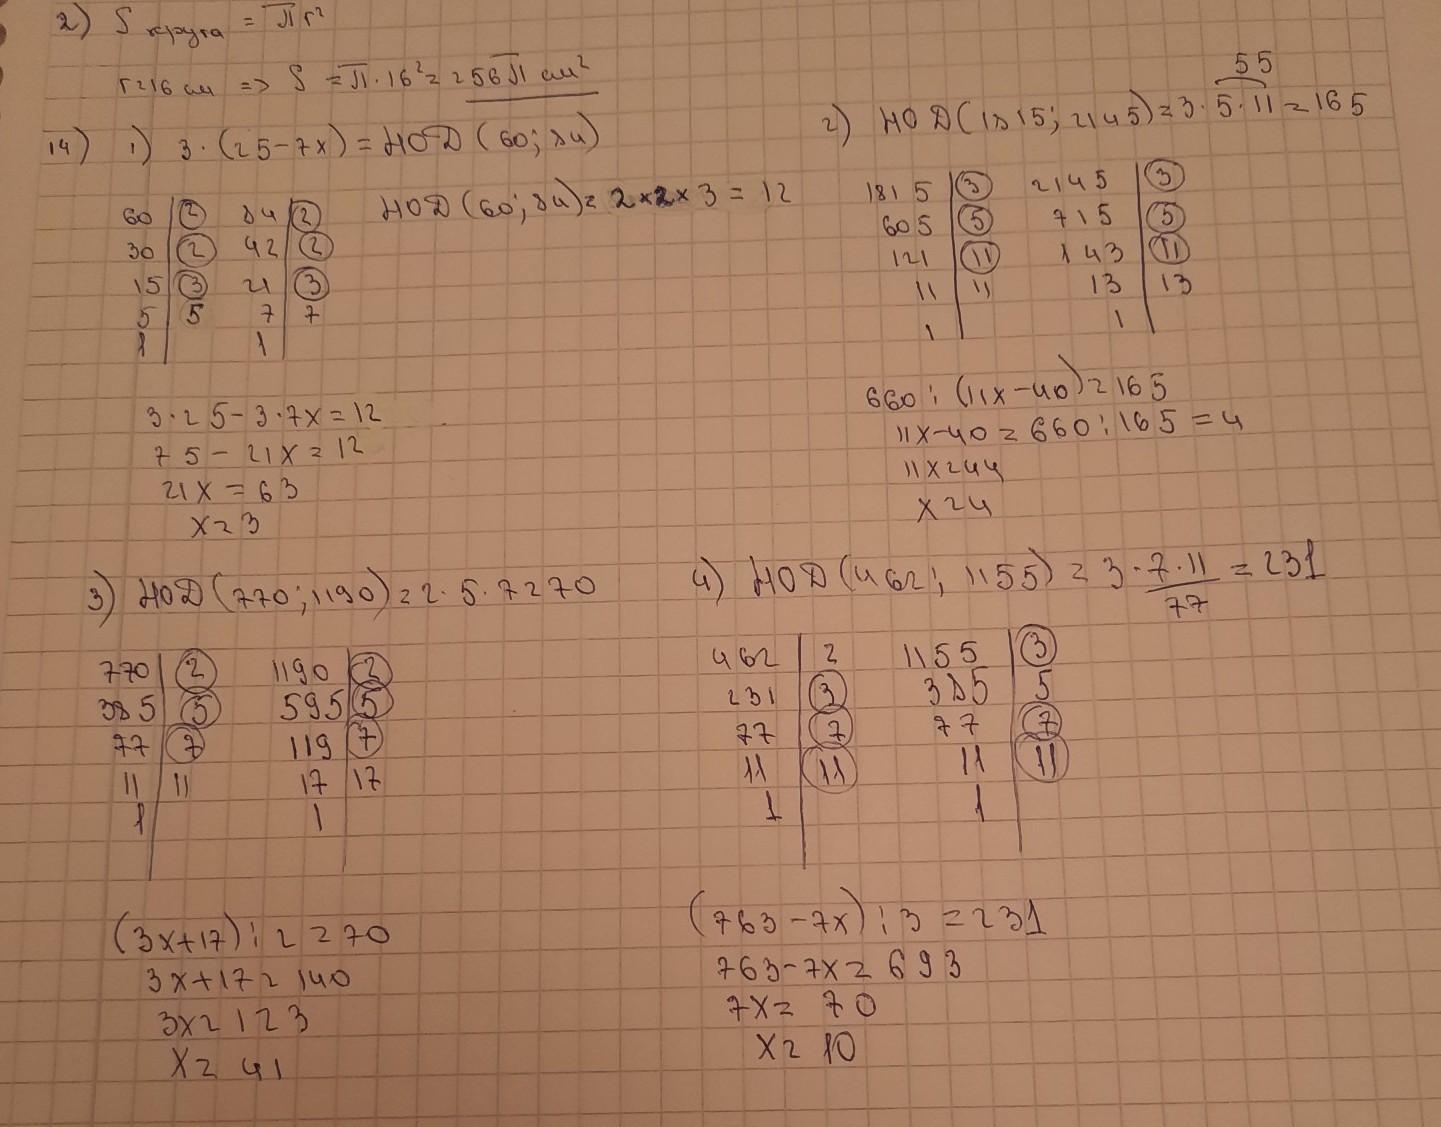 2) S круга = πr²
r=16 см => S = π·16² = 256π см²
14) 1) 3·(25-7x) = НОД (60; 84)
НОД (60; 84) = 2×2×3 = 12
60 | 2 84 | 2
30 | 2 42 | 2
15 | 3 21 | 3
5 | 5 7 | 7
1 | 1 |
3·25-3·7x=12
75-21x=12
21x=63
x=3
55
2) НОД(1815; 2145)=3·5·11=165
1815 | 3 2145 | 3
605 | 5 715 | 5
121 | 11 143 | 11
11 | 11 13 | 13
1 | 1 |
660:(11x-40)=165
11x-40=660:165=4
11x=44
x=4
3) НОД(770; 1190)=2·5·7=70
770 | 2 1190 | 2
385 | 5 595 | 5
77 | 7 119 | 7
11 | 11 17 | 17
1 | 1 |
(3x+17):2=70
3x+17=140
3x=123
x=41
4) НОД(462; 1155)=3·7·11=231
77
462 | 2 1155 | 3
231 | 3 385 | 5
77 | 7 77 | 7
11 | 11 11 | 11
1 | 1 |
(763-7x):3=231
763-7x=693
7x=70
x=10